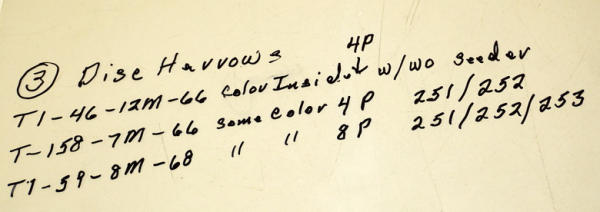 ③ Disc Harrows 4P
T1-46-12M-66 color Inside w/wo seeder
T-158-7M-66 same color 4P 251/252
T1-59-8M-68 " " 8P 251/252/253